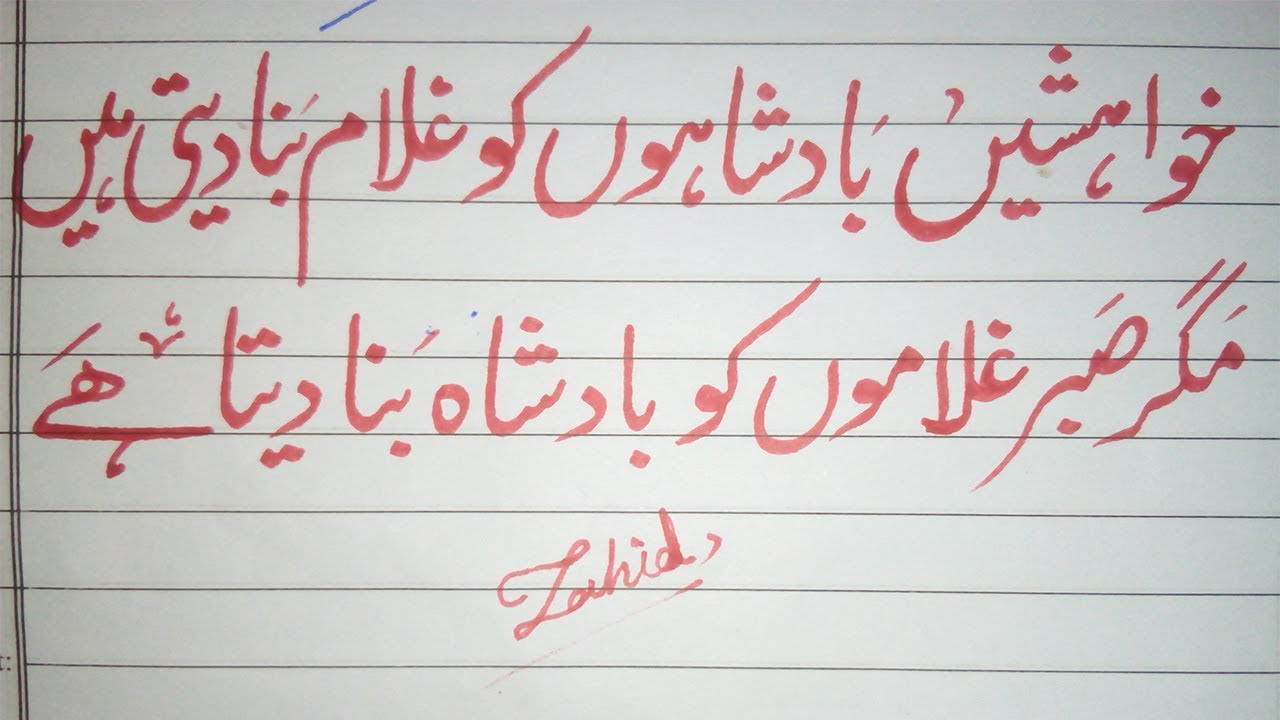 خواہشیں بَادشاہوں کو غلام بَنا دیتی ہیں
مَگر صَبر غلاموں کو بادشاہ بَنا دیتا ھَے
Zahid